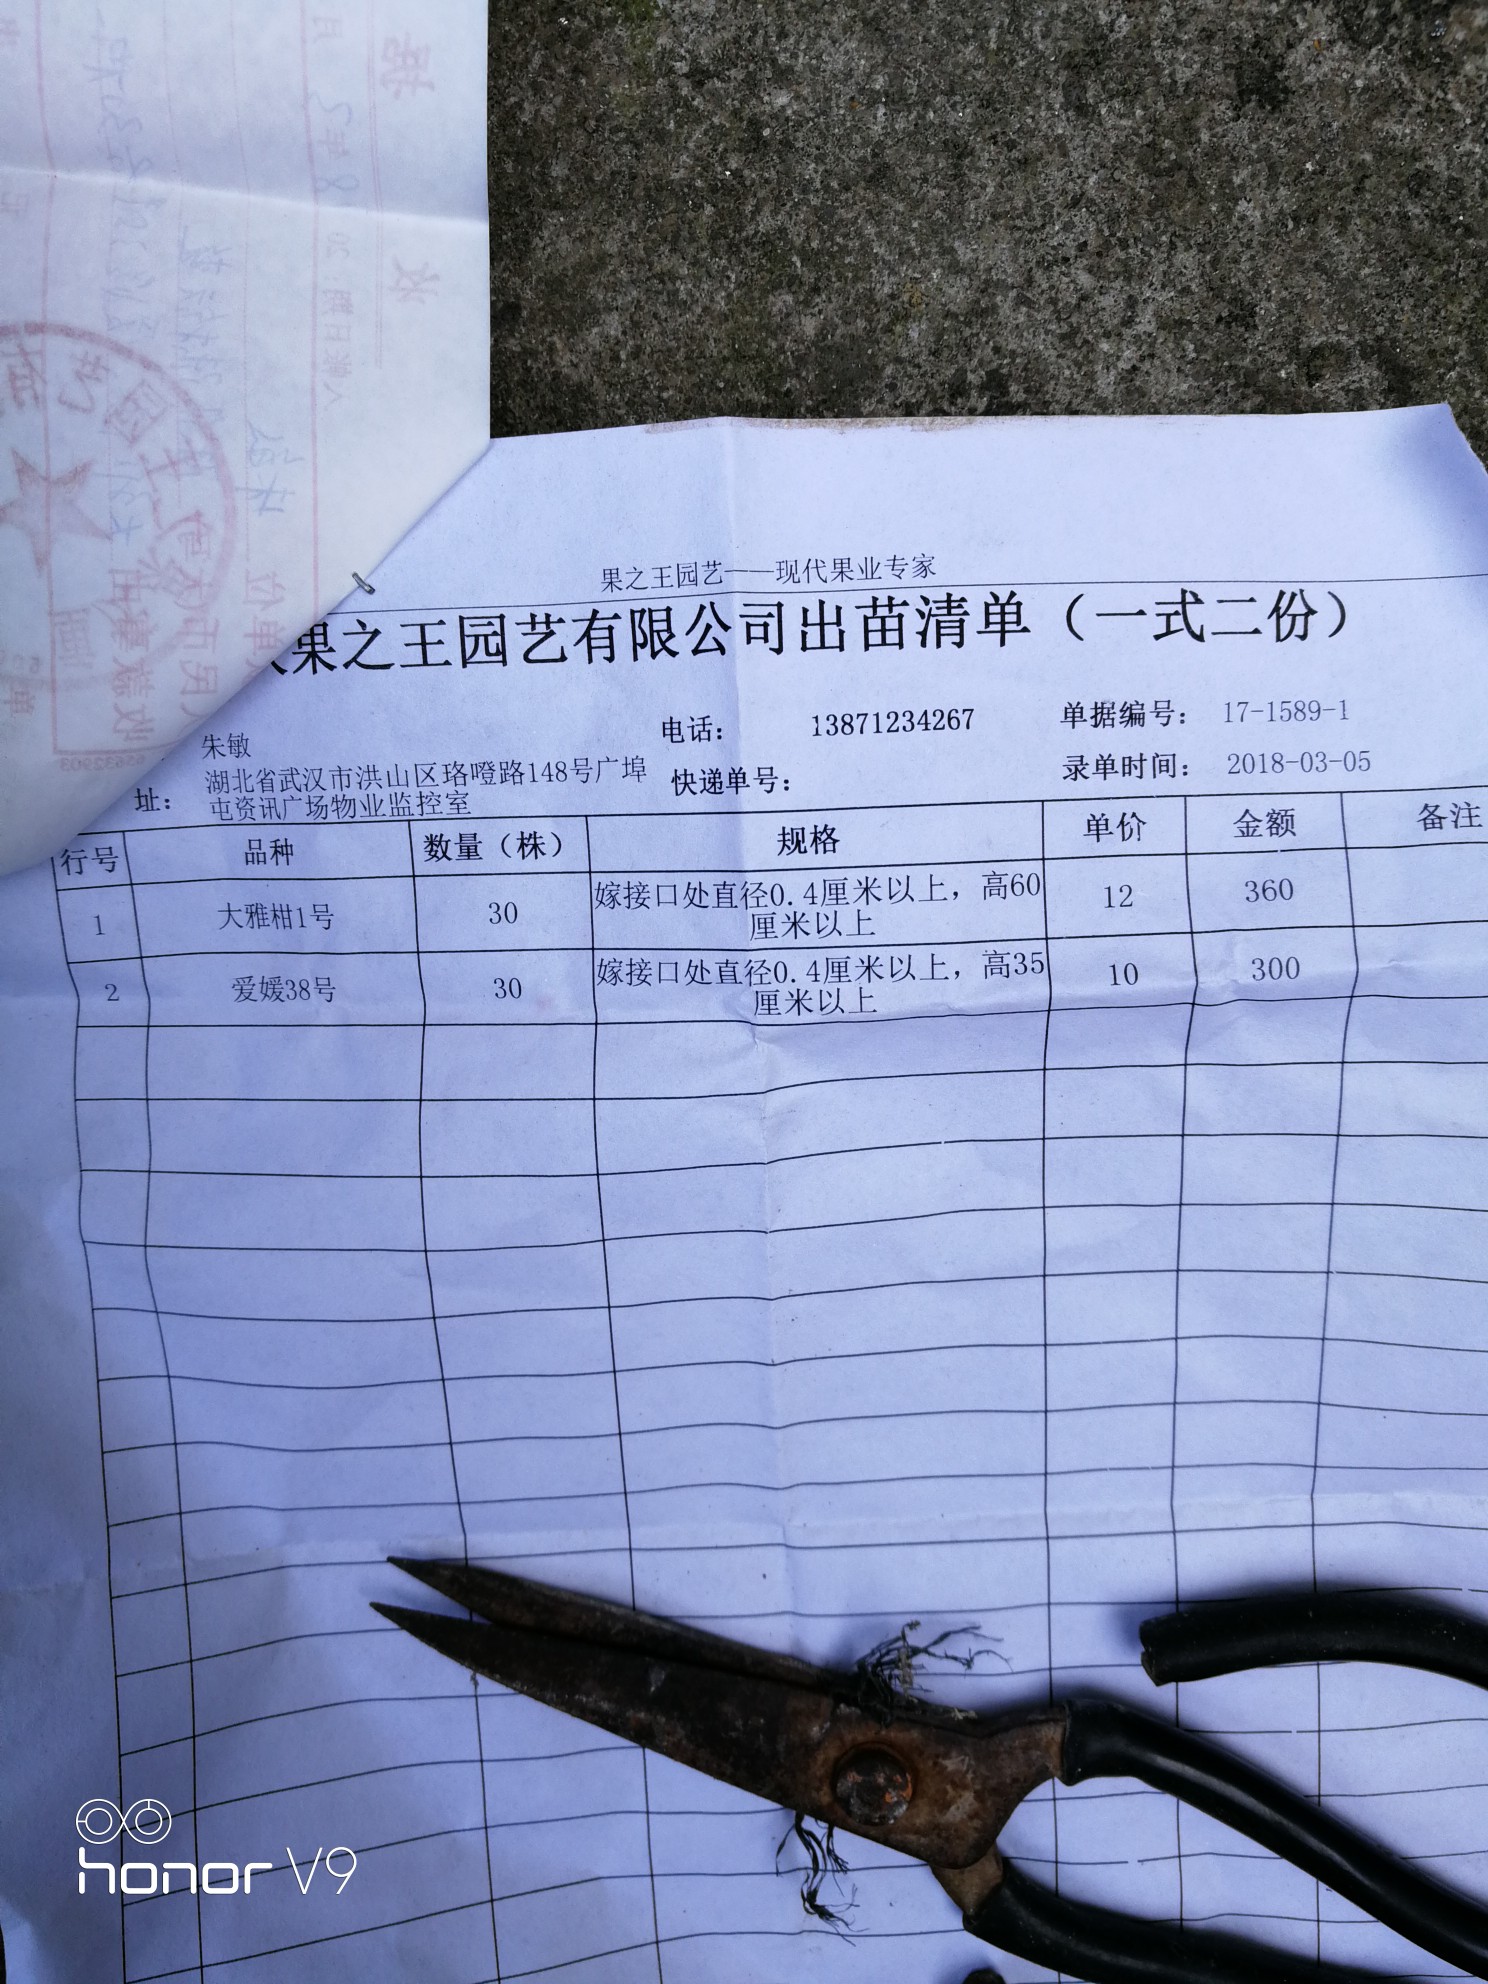 果之王园艺——现代果业专家
果之王园艺有限公司出苗清单（一式二份）
朱敏
电话：
13871234267
单据编号：
17-1589-1
址：
湖北省武汉市洪山区珞噔路148号广埠
屯资讯广场物业监控室
快递单号：
录单时间：
2018-03-05
行号 品种 数量（株） 规格 单价 金额 备注
1 大雅柑1号 30 嫁接口处直径0.4厘米以上，高60
厘米以上 12 360
2 爱媛38号 30 嫁接口处直径0.4厘米以上，高35
厘米以上 10 300
honor V9